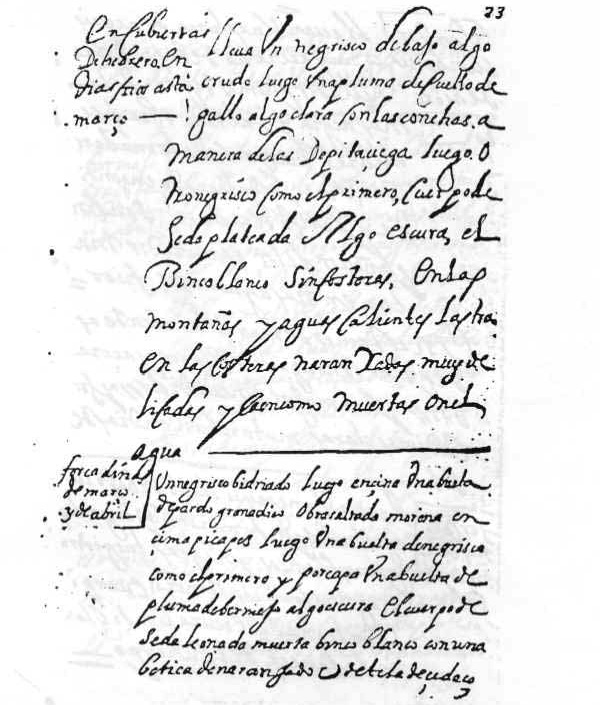 23
En Cubiertas
De hebrero, En
dias frios asta
março —
lleva Un negrisco debajo algo
crudo luego Una pluma de Cuello de
gallo algo clara Con las conchas. a
manera de las Depitaciega luego. O
tro negrisco Como el primero, Cuerpo de
Seda plateada Algo escura, el
Binco blanco Sin Costeras, En las
montañas y aguas Calientes las tra
en las Costeras naran Xadas muy de
licadas y Caen como muertas en el
agua
forcadina
de março
y de abril
Un negrisco bidriado luego encima Una buelta
de pardo granadico Obra saltada morena en
çima picapes luego Una buelta de negrisco
como el primero y por capa Una buelta de
pluma de bermejo algo escuro El cuerpo de
Seda leonado muerta binco blanco con una
botica de naranjado de tela de çudaço